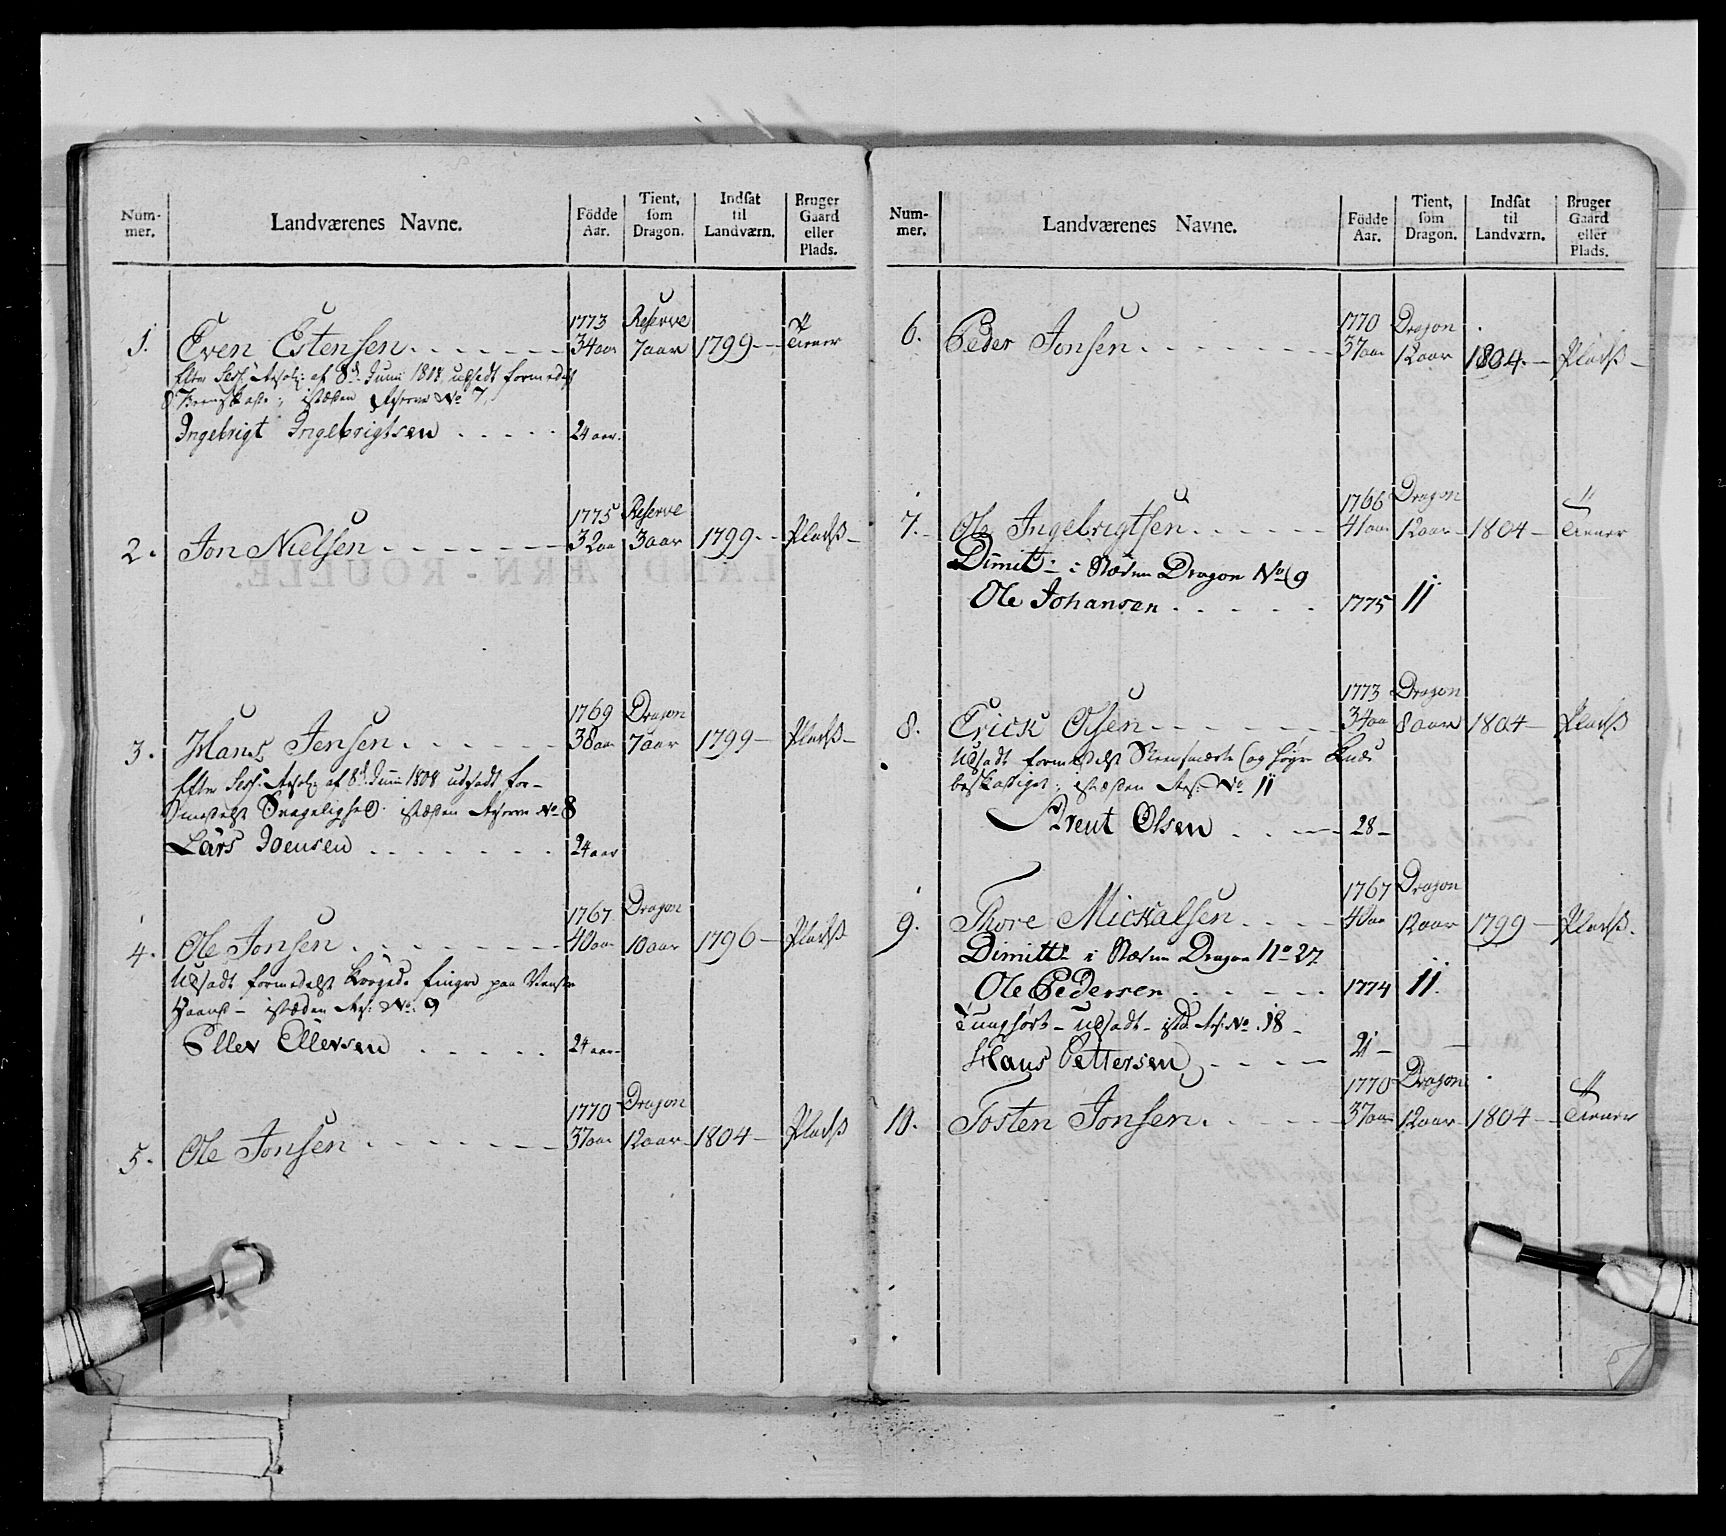 Num-mer. Landværenes Navne. Födde Aar. Tient, som Dragon. Indsat til Landværn. Bruger Gaard eller Plads.
1. Even Estensen 1773 34 aar Reserve 7 aar 1799 " Tiener
Efter Sess: Resol: af 8d Junii 1808 udsadt formedelst
istæden Reserve No 7
Ingebrigt Ingebrigtsen 24 aar.
2. Jon Nielsen 1775 32 aa Reserve 3 aar 1799 Pladß
3. Hans Jensen 1769 38 aar Dragon 7 aar 1799 Pladß
Efter Sess: Resol: af 8d Junii 1808 udsadt for-
medelst Svagelighed. istæden Reserve No 8
Lars Joensen 24 aar
4. Ole Jonsen 1767 40 aar Dragon 10 aar 1796 Pladß
Udsadt formedelst krogede fingre paa Venstre
Haand - istæden Res: No. 9
Eller Ellersen 24 aar
5. Ole Jonsen 1770 37 aar Dragon 12 aar 1804 Pladß
Num-mer. Landværenes Navne. Födde Aar. Tient, som Dragon. Indsat til Landværn. Bruger Gaard eller Plads.
6. Peder Jonsen 1770 37 aar Dragon 12 aar 1804 Pladß
7. Ole Ingebrigtsen 1766 41 aar Dragon 12 aar 1804 " Tiener
Dimitt: i Stæden Dragon No 9
Ole Johansen 1775 11
8. Erick Olsen 1773 34 aa Dragon 8 aar 1804 Pladß
Udsadt formedelst og høyre
beskadiget; istæden Res: No 11
Arent Olsen 28
9. Thore Mickalsen 1767 40 aar Dragon 12 aar 1799 Pladß
Dimitt: i Stæden Dragon No 27
Ole Pedersen 1774 11
Tunghört - udsadt - istd. Res: No. 18
Hans Pettersen 21
10. Tosten Jonsen 1770 37 aar Dragon 12 aar 1804 " Tiener